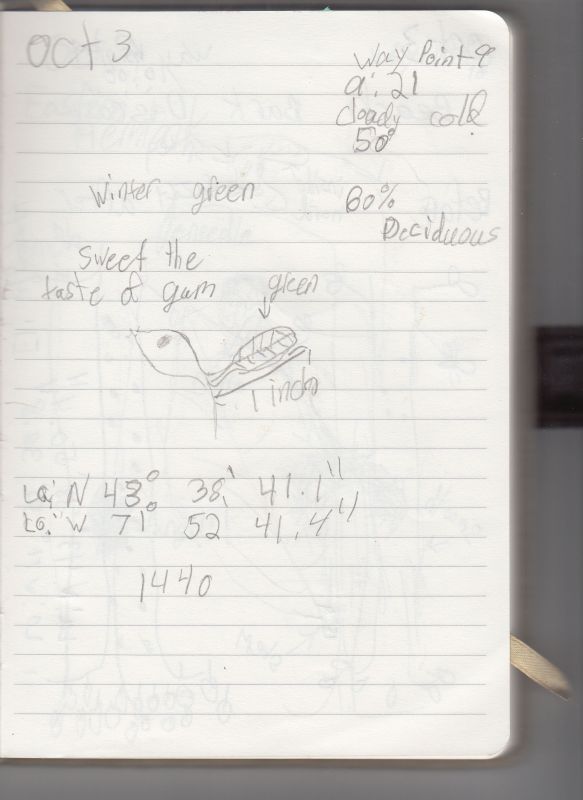 Oct 3
Way Point 9
a: 21
cloady cold
50°
Winter green
60%
Deciduous
Sweet the
taste of gum
green
1 inch
La; N 43° 38' 41.1"
Lo; W 71° 52 41.4"
1440